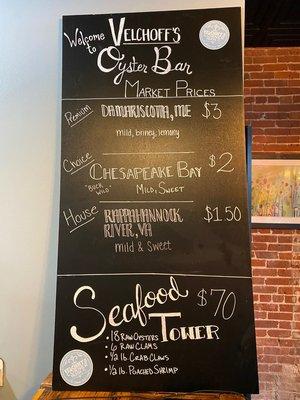 Welcome to VELCHOFF'S
Oyster Bar
MARKET PRICES
Premium
DAMARISCOTTA, ME $3
mild, briney, lemony
Choice
CHESAPEAKE BAY $2
"BUCK WILD" MILD, SWEET
House
RAPPAHANNOCK RIVER, VA $1.50
mild & Sweet
Seafood TOWER $70
• 18 RAW OYSTERS
• 6 RAW CLAMS
• 1/2 lb CRAB CLAWS
• 1/2 lb. POACHED SHRIMP